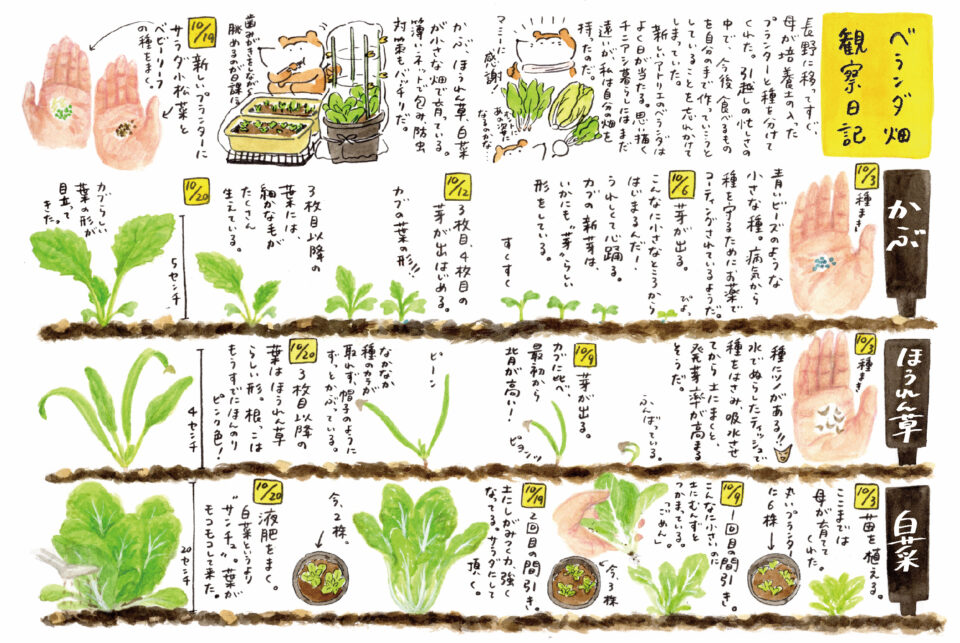 ベランダ畑
観察日記
長野に移ってすぐ、
母が培養土の入った
プランターと種を分けて
くれた。引越しの忙しさの
中で、今後、食べるもの
を自分の手で作っていこうと
していることを忘れかけて
しまっていた。
新しいアトリエのベランダは
よく日が当たる。思い描く
チロニアン暮らしにはまだ
遠いが、私は自分の畑を
持ったのだ。
マミーに
感謝!
むすにて
あの姿に
なるのかな…
かぶ、ほうれん草、白菜
が小さな畑で育っている。
薄いネットで包み、防虫
対策もバッチリだ。
歯みがきをしながら
眺めるのが日課に
10/19
新しいプランターに
サラダ小松菜と
ベビーリーフ
の種をまく。
かぶ
10/3
種まき
青いビーズのような
小さな種。病気から
種を守るためにお薬で
コーティングされているようだ。
10/6
芽が出る。
ぴょ
こんなに小さなところから
はじまるんだ!
うれしくて心踊る。
カブの新芽は、
いかにも“芽”らしい
形をしている。
すくすく
10/12
3枚目、4枚目の
芽が出はじめる。
カブの葉の形!!!
3枚目以降の
葉には
細かな毛が
たくさん
生えている。
10/20
5センチ
カブらしい
葉の形が
目立って
きた。
ほうれん草
10/3
種まき
種にツノがある!!
水でぬらしたティッシュで
種をはさみ吸水させ
てから土にまくと、
発芽率が高まる
そうだ。
ふんばっている。
10/9
芽が出る。
カブに比べ、
最初から
背が高い!
ピョンッ
ピーン
なかなか
種のカラが
取れず、帽子のように
ずっとかぶっている。
10/20
3枚目以降の
葉はほうれん草
らしい形。根っこは
もうすでにほんのり
ピンク色!
4センチ
白菜
10/3
苗を植える。
ここまでは
母が育てて
くれた。
丸いプランター
に6株
10/9
1回目の間引き。
こんなに小さいのに
土にむんずと
つかまっている。
「ごめん」
今、3株
10/19
2回目の間引き。
土にしがみつく力、強く
なってる。サラダにして
頂く。
今、2株。
10/20
液肥をまく。
白菜というより
“サンチュ”。葉が
モコモコして来た。
20センチ